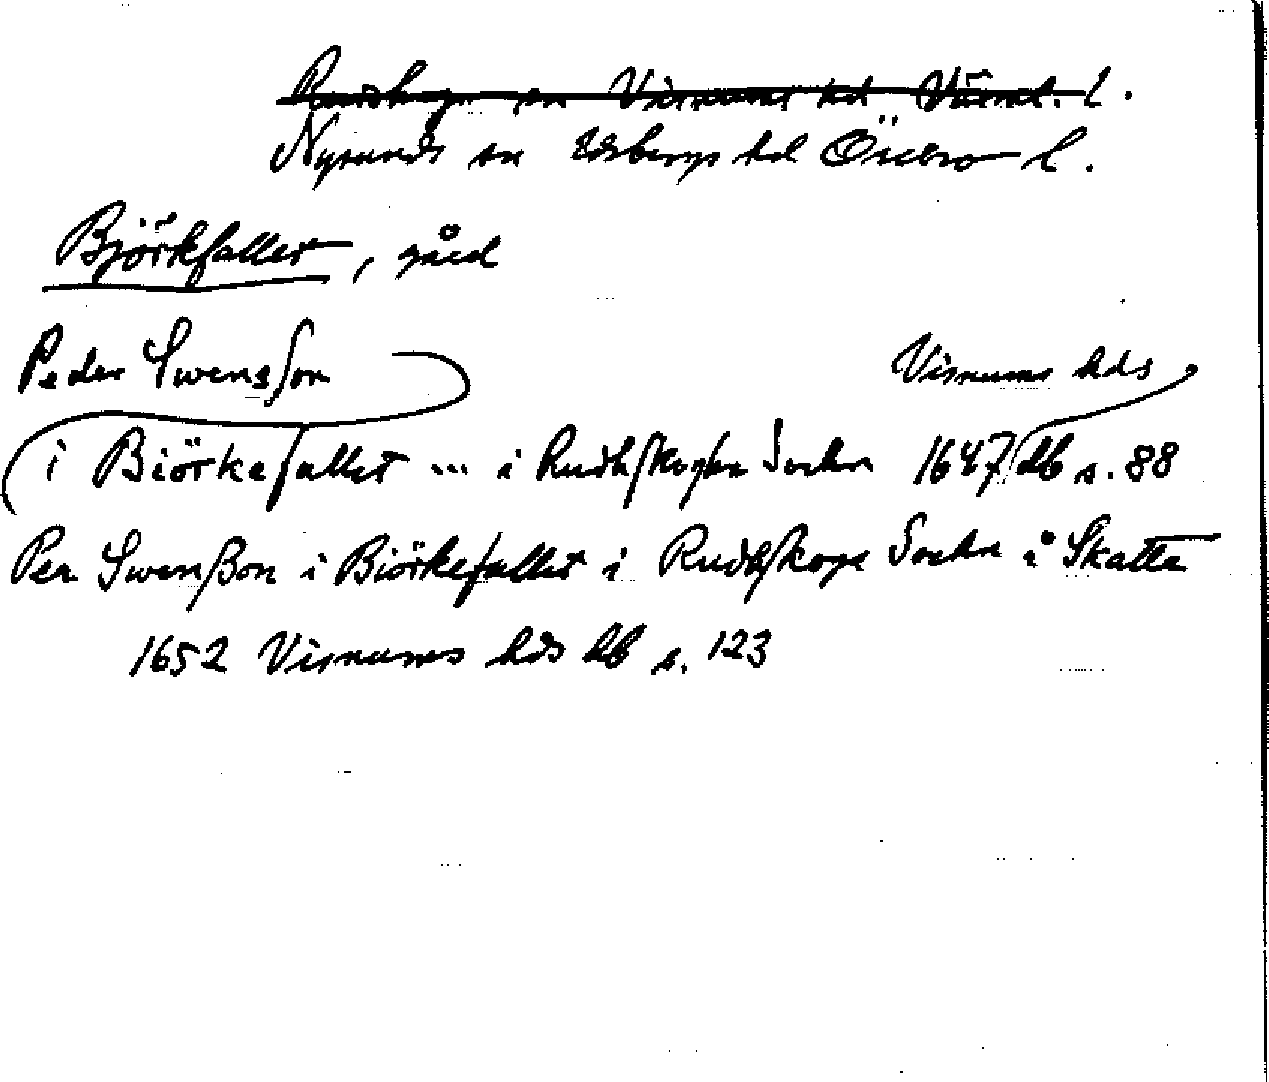 Rudskoga sn Visnums hd Värml. l.
Nysunds sn Edsbergs hd Örebro l.
Björkfallet, gård
Peder Swensson Visnums hds
i Biörkefallet ... i Rudhskoga Sochn 1647 db s. 88
Per Swenßon i Biörkefallet i Rudhskoga Sochn å Skatte
1652 Visnums hds db s. 123